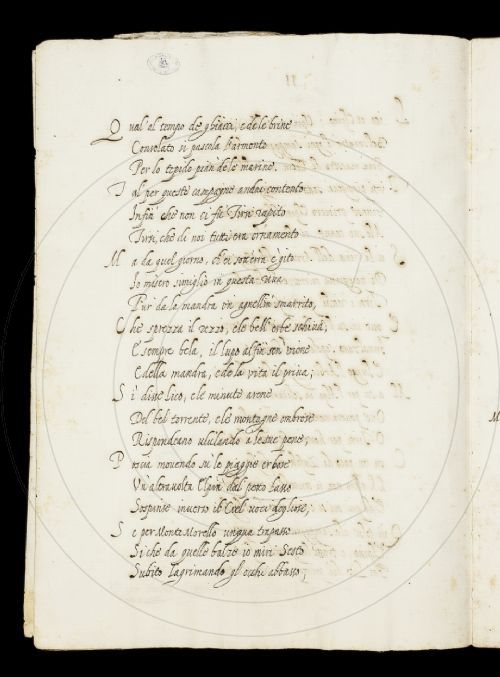 Qual al tempo de ghiacci, e de le brine
Consolato si pascola l'armento
Per lo tepido pian de le marine.
Tal per queste campagne andai contento
Infin che non ci fu Tirsi rapito
Tirsi, che di noi tutti era ornamento
Ma da quel giorno, ch'ei sotterra è gito
Io misero simiglio in questa riva
Pur da la mandra un agnellin smarrito,
Che sprezza il rezzo, e le bell'erbe schiva,
E sempre bela, il lupo alfin sen viene
E della mandra, e de la vita il priva;
Sì disse Lico, e le minute arene
Del bel torrente, e le montagne ombrose
Rispondeano ululando a le sue pene,
Poscia movendo su le piagge erbose
Un'altra volta Elpin dal petto lasso
Sospinse inverso il Ciel voci dogliose;
Se per Monte Morello unqua trapasso
Sì che da quelle balze io miri Sesto
Subito lagrimando gl'occhi abbasso;